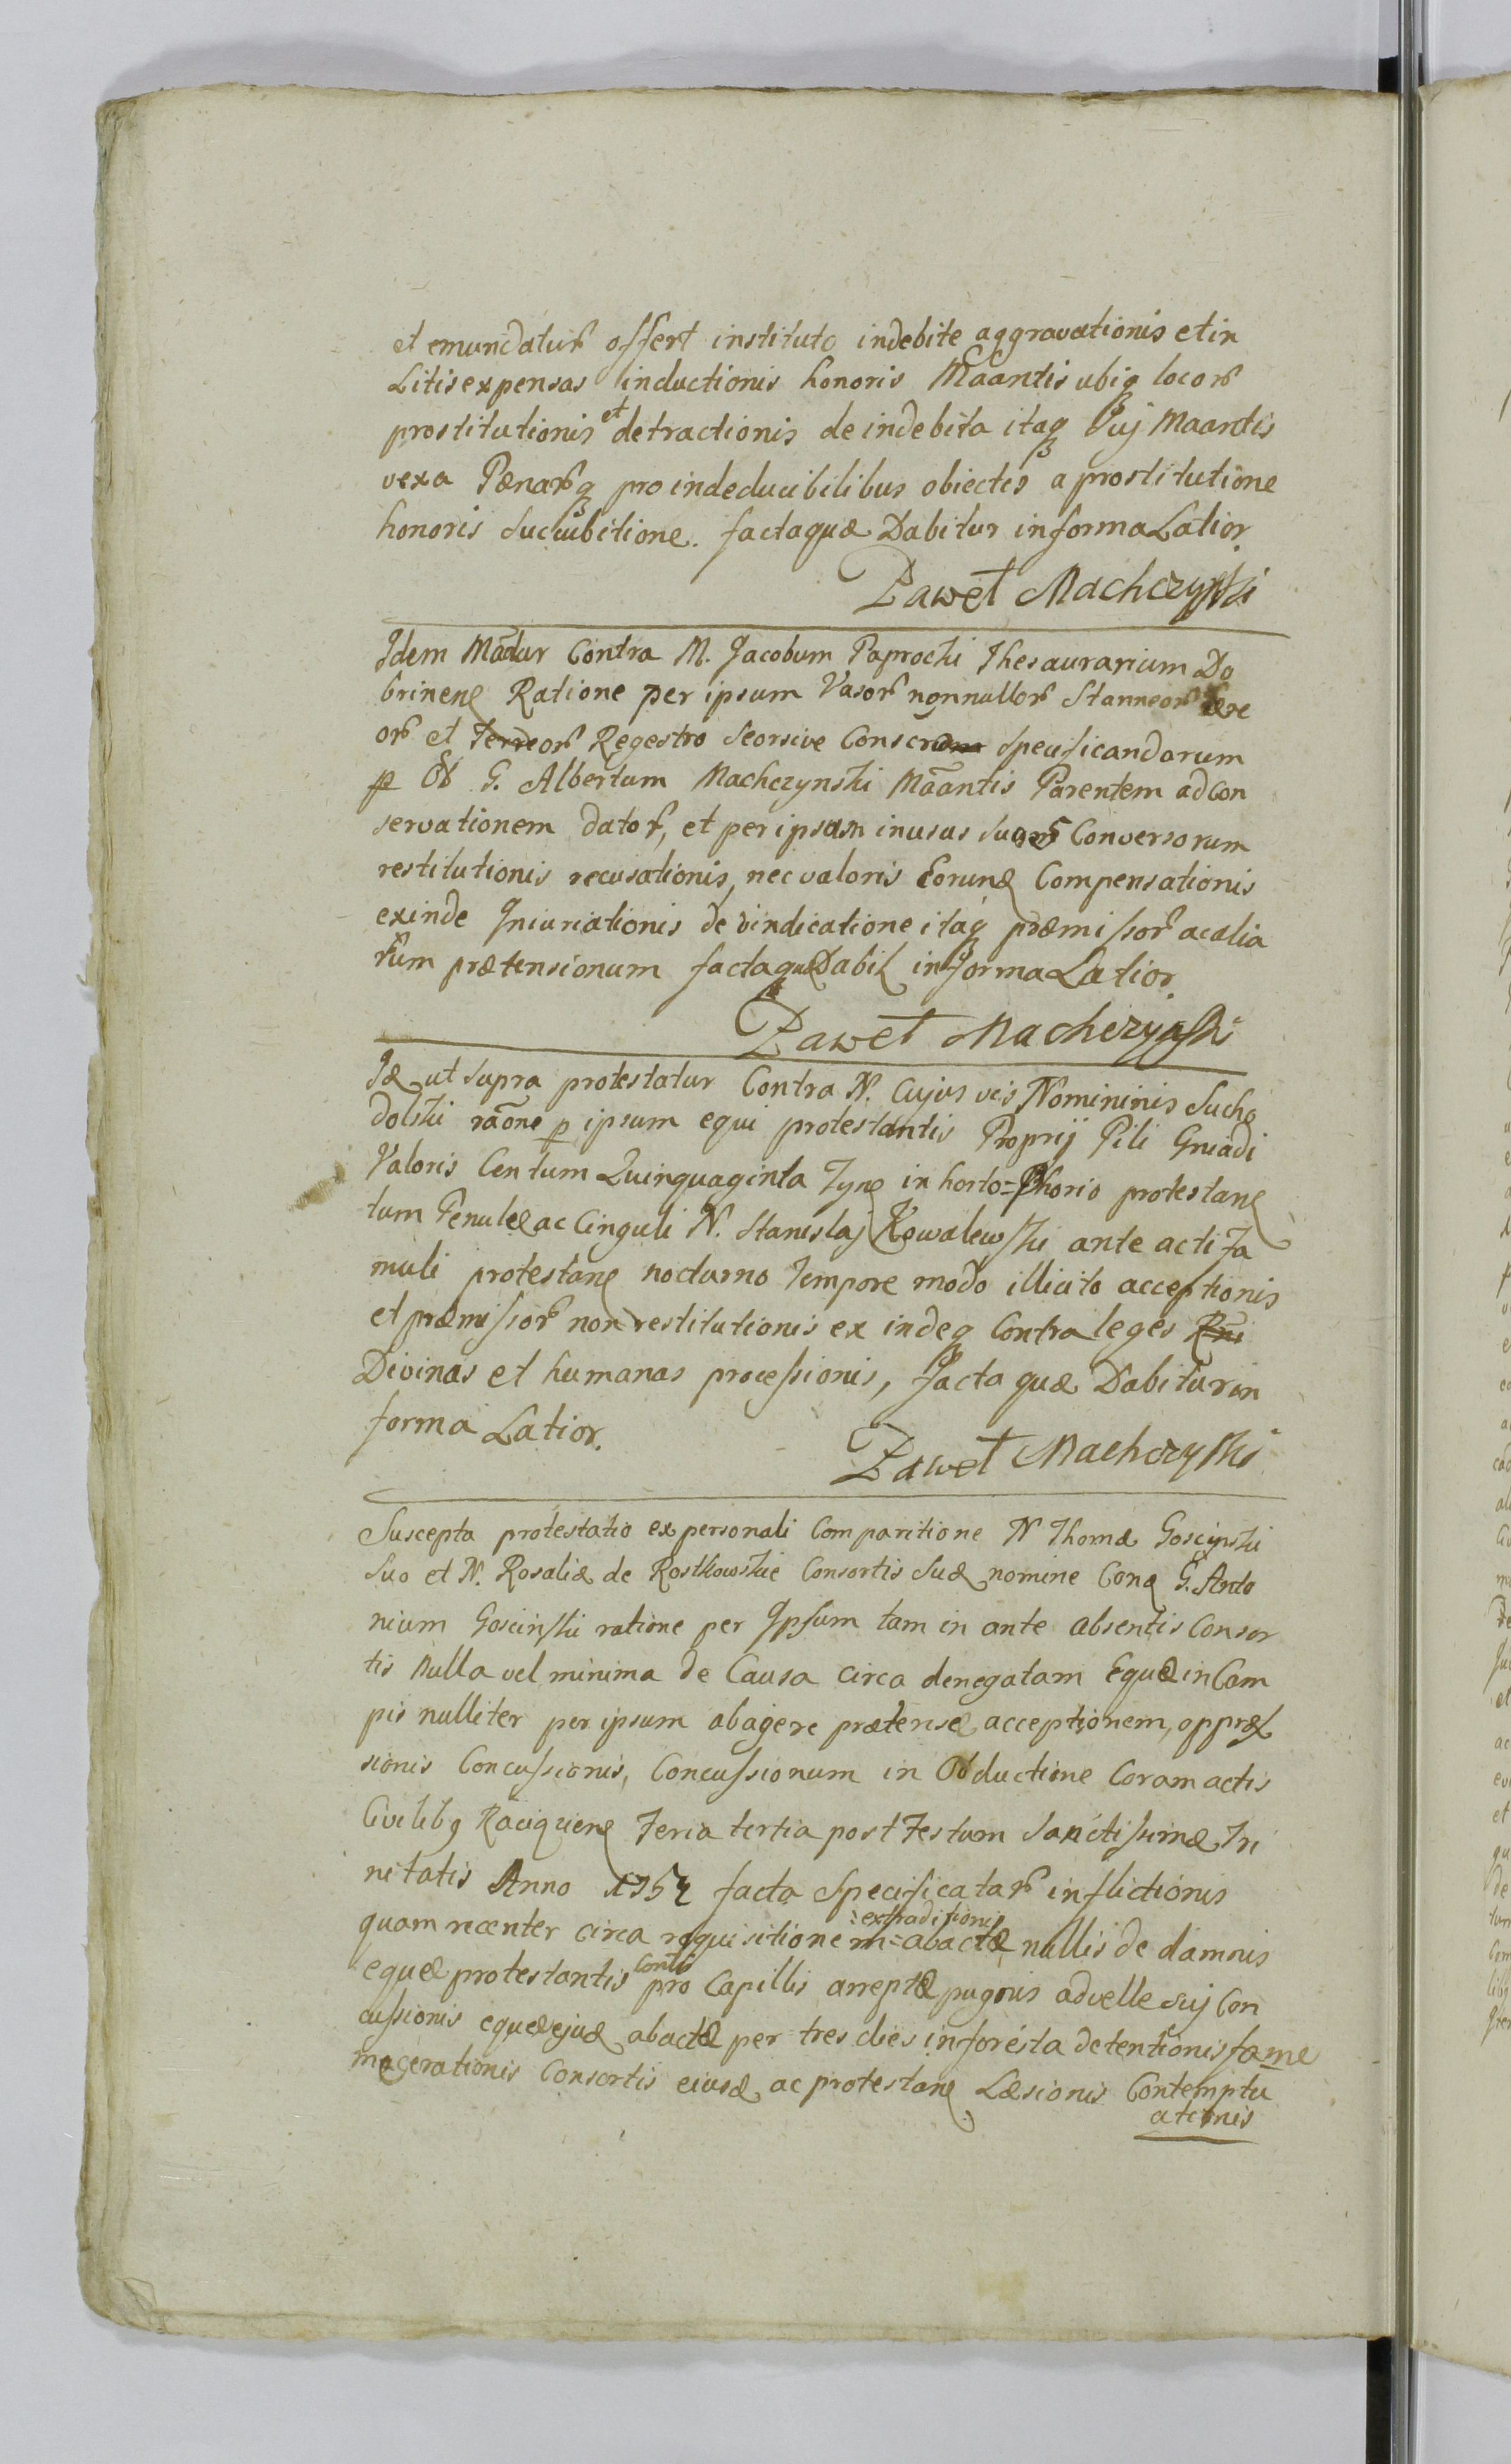 et emundatur offert instituto indebite aggravationis et in
Litis expensas inductionis honoris Maantis ubiq locor
prostitutionis et detractionis de indebita itaq Suj Maantis
vexa Pænarq pro indeducibilibus obiectis a prostitutione
honoris succubitione. factaquæ Dabitur in forma Latior.
Paweł Machczyński
Idem Mãdur Contra M. Jacobum Paprocki Thesaurarium Do
brinen Ratione per ipsum Vasor nonnullor Stanneor ære
or et ferreor Regestro seorsive Conscr specificandorum
p Ol G. Albertum Machczynski Mãantis Parentem ad Con
servationem dator, et per ipsum in usus suos Conversorum
restitutionis recusationis, nec valoris Eorund Compensationis
exinde Iniuriationis de vindicatione itaq præmissor ac alia
rum prætensionum factaquæ Dabit in forma Latior.
Paweł Machczyński
Id ut supra protestatur Contra N. Cujus vis Nomininis Sucho
dolski rãone p ipsum equi protestantis Proprij Pili Gniadi
Valoris Centum Quinquaginta Tyn in horto Phorio protestan
tum Penulæ ac Cinguli N. Stanislaj Kowalewski ante acti Fa
muli protestan nocturno tempore modo illicito acceptionis
et præmissor non restitutionis ex indeq Contra leges
Divinas et humanas processionis, facta quæ Dabitur in
forma Latior.
Paweł Machczyński
Suscepta protestatio ex personali Comparitione N Thomæ Goscinski
Suo et N. Rosaliæ de Rostkowskie Consortis Suæ nomine Con G. Anto
nium Goscinski ratione per Ipsum tam in ante absentis Consor
tis Nulla vel minima de Causa circa denegatam Equæ in Cam
pis nulliter per ipsum abagere prætensæ acceptionem, oppres
sionis Concussionis, Concussionum in Obductione Coram actis
Civilibq Raciązien Feria tertia post Festum Sanctissimæ Tri
nitatis Anno 1752 facta Specificatar inflictionis
quam recenter circa requisitionem extraditionis abactæ nullis de damnis
equæ protestantis Contis pro Capillis arreptæ pugnis advelle suj Con
cussionis equæ ejusd abactæ per tres dies in foresta detentionis fame
macerationis Consortis eiusd ac protestan Læsionis Contemptu
ationis